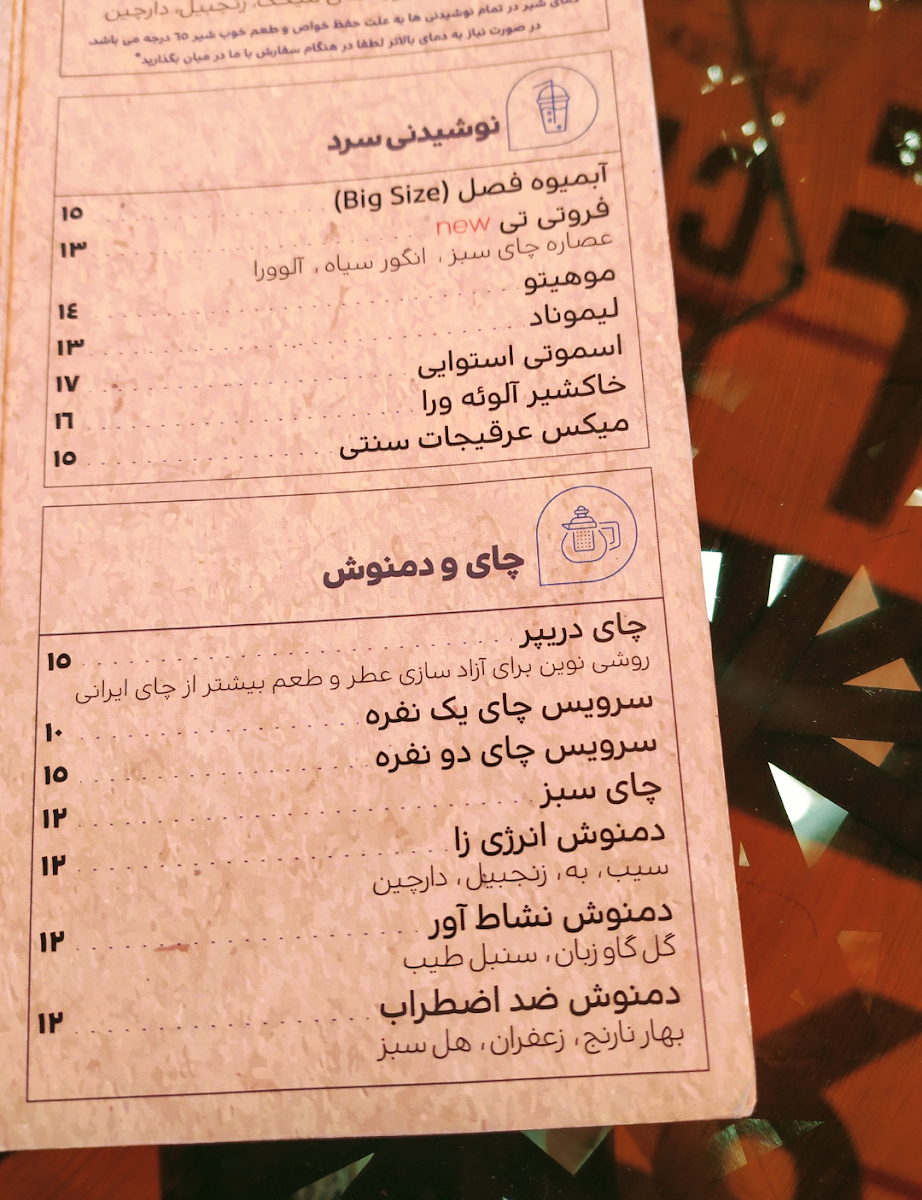 زنجبیل، دارچین
دمای شیر در تمام نوشیدنی ها به علت حفظ خواص و طعم خوب شیر ٦٥ درجه می باشد.
در صورت نیاز به دمای بالاتر لطفا در هنگام سفارش با ما در میان بگذارید*
نوشیدنی سرد
آبمیوه فصل (Big Size) ١٥
فروتی تی new ١٣
عصاره چای سبز ، انگور سیاه ، آلوورا
موهیتو ١٤
لیموناد ١٣
اسموتی استوایی ١٧
خاکشیر آلوئه ورا ١٦
میکس عرقیجات سنتی ١٥
چای و دمنوش
چای دریپر ١٥
روشی نوین برای آزاد سازی عطر و طعم بیشتر از چای ایرانی
سرویس چای یک نفره ١٠
سرویس چای دو نفره ١٥
چای سبز ١٢
دمنوش انرژی زا ١٢
سیب، به، زنجبیل، دارچین
دمنوش نشاط آور ١٢
گل گاو زبان، سنبل طیب
دمنوش ضد اضطراب ١٢
بهار نارنج، زعفران، هل سبز